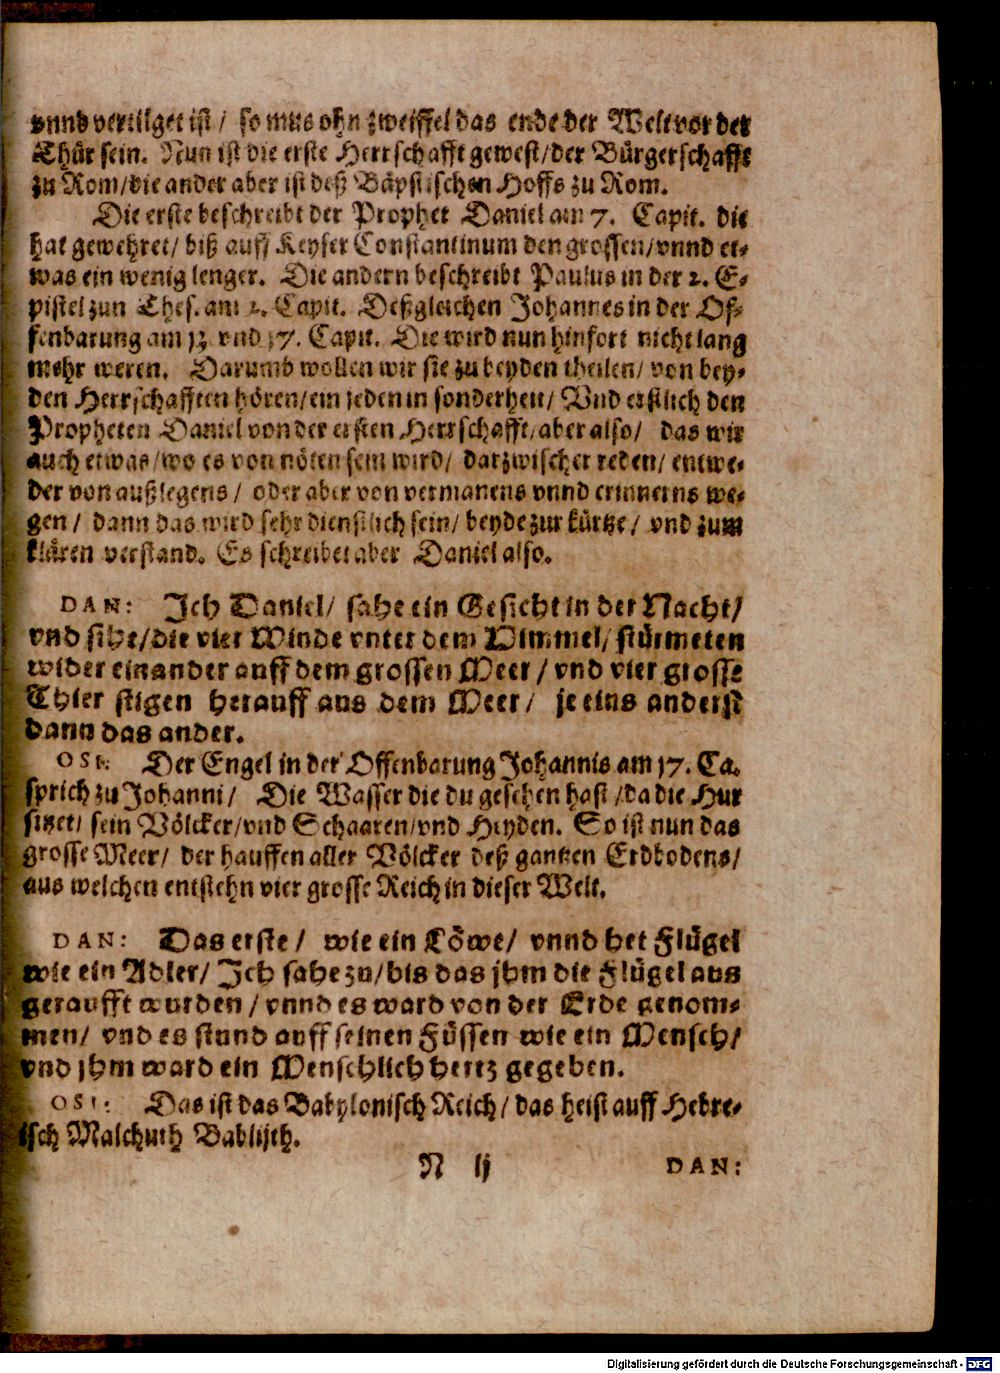 vnnd vertilget ist / so mus ohn zweiffel das ende der Welt vor der
Thür sein. Nun ist die erste Herrschafft gewest/der Bürgerschafft
zu Rom/die ander aber ist deß Bäpstischen Hoffs zu Rom.
Die erste beschreibt der Prophet Daniel am 7. Capit. die
hat gewehret/ biß auff Keyser Constantinum den grossen/vnnd et-
was ein wenig lenger. Die andern beschreibt Paulus in der 2. E-
pistel zun Thes. am 2. Capit. Deßgleichen Johannes in der Of-
fenbarung am 13 vnd 17. Capit. Die wird nun hinfort nicht lang
mehr weren. Darumb wollen wir sie zu beyden theilen/ von bey-
den Herrschafften hören/ein jeden in sonderheit/ Vnd erstlich den
Propheten Daniel von der ersten Herrschafft/aber also/ das wir
auch etwas/wo es von nöten sein wird/ darzwischen reden/ entwe-
der von außlegens / oder aber von vermanens vnnd erinnerns we-
gen / dann das wird sehr dienstlich sein/ beyde zur kürtze/ vnd zum
klären verstand. Es schreibet aber Daniel also.
DAN: Ich Daniel/ sahe ein Gesicht in der Nacht/
vnd sihe/die vier Winde vnter dem Himmel/ stürmeten
wider einander auff dem grossen Meer / vnd vier grosse
Thier stigen herauff aus dem Meer/ je eins anderst
dann das ander.
OSI: Der Engel in der Offenbarung Johannis am 17. Ca.
sprich zu Johanni/ Die Wasser die du gesehen hast /da die Hur
sitzet/ sein Völcker/vnd Schaaren/vnd Heyden. So ist nun das
grosse Meer/ der hauffen aller Völcker deß gantzen Erdbodens/
aus welchen entstehn vier grosse Reich in dieser Welt.
DAN: Das erste / wie ein Löwe/ vnnd het Flügel
wie ein Adler/ Ich sahe zu/bis das jhm die Flügel aus
geraufft wurden / vnnd es ward von der Erde genom-
men/ vnd es stund auff seinen Füssen wie ein Mensch/
vnd jhm ward ein Menschlich hertz gegeben.
OSI: Das ist das Babylonisch Reich/ das heist auff Hebre-
isch Malchuth Bablijth.
N ij DAN:
Digitalisierung gefördert durch die Deutsche Forschungsgemeinschaft - DFG